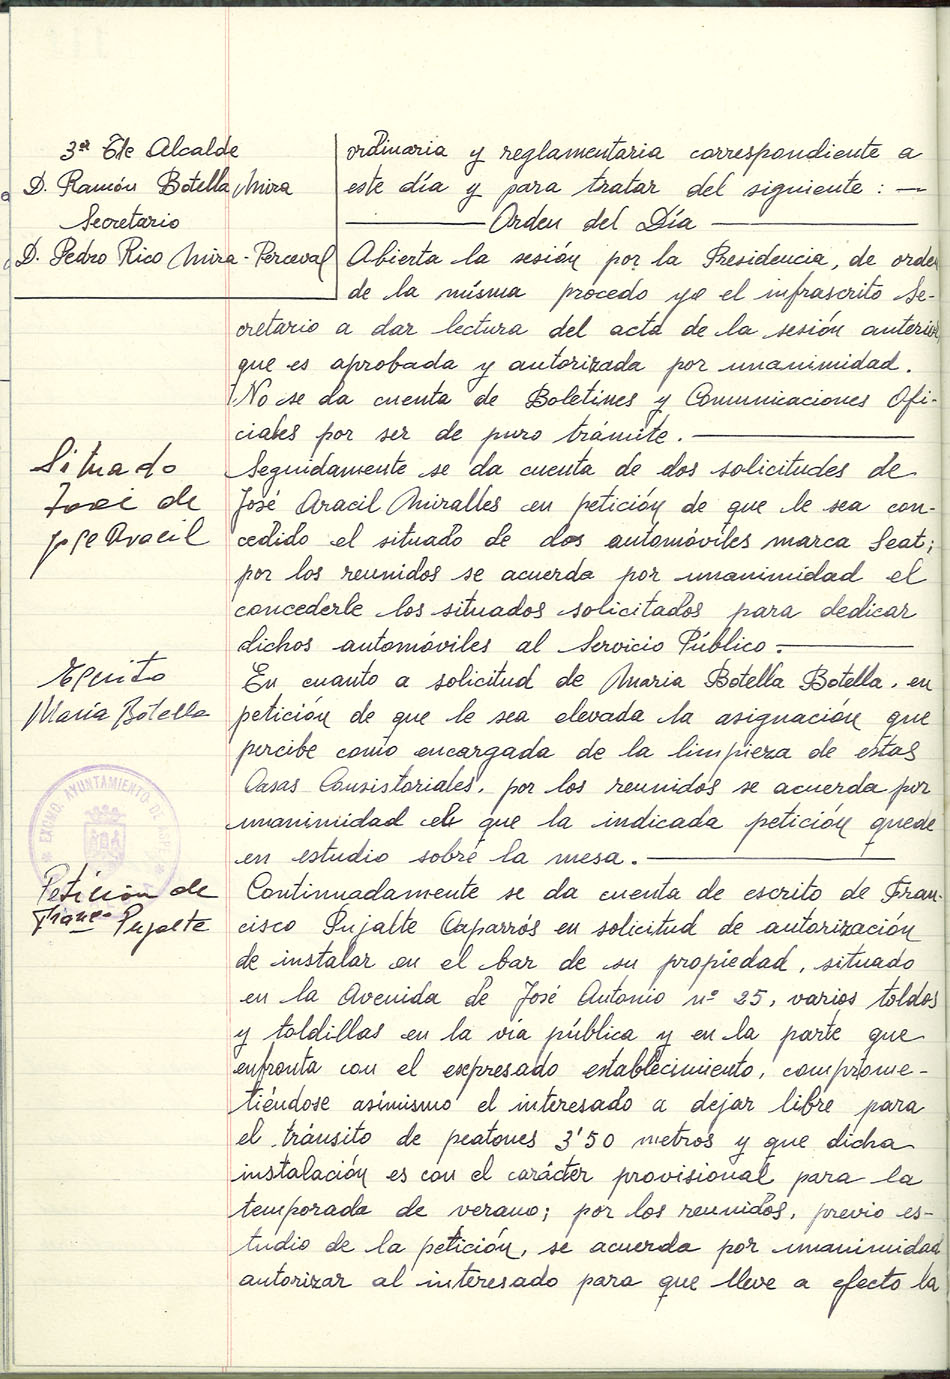 3er Tte Alcalde
D. Ramón Botella Mira
Secretario
D. Pedro Rico Mira-Perceval
ordinaria y reglamentaria correspondiente a
este día y para tratar del siguiente: —
Orden del Día
Abierta la sesión por la Presidencia, de orden
de la misma procedo yo el infrascrito Se-
cretario a dar lectura del acta de la sesión anterior
que es aprobada y autorizada por unanimidad.
No se da cuenta de Boletines y Comunicaciones Ofi-
ciales por ser de puro trámite.
Situado
de
Jose Aracil
Seguidamente se da cuenta de dos solicitudes de
José Aracil Miralles en petición de que le sea con-
cedido el situado de dos automóviles marca Seat;
por los reunidos se acuerda por unanimidad el
concederle los situados solicitados para dedicar
dichos automóviles al Servicio Público.
Escrito
Maria Botella
En cuanto a solicitud de Maria Botella Botella, en
petición de que le sea elevada la asignación que
percibe como encargada de la limpieza de estas
Casas Consistoriales, por los reunidos se acuerda por
unanimidad el que la indicada petición quede
en estudio sobre la mesa.
EXCMO. AYUNTAMIENTO DE ASPE
Petición de
Franco Pujalte
Continuadamente se da cuenta de escrito de Fran-
cisco Pujalte Caparrós en solicitud de autorización
de instalar en el bar de su propiedad, situado
en la Avenida de José Antonio nº 25, varios toldos
y toldillas en la vía pública y en la parte que
enfronta con el expresado establecimiento, comprome-
tiéndose asimismo el interesado a dejar libre para
el tránsito de peatones 3'50 metros y que dicha
instalación es con el carácter provisional para la
temporada de verano; por los reunidos, previo es-
tudio de la petición, se acuerda por unanimidad
autorizar al interesado para que lleve a efecto la